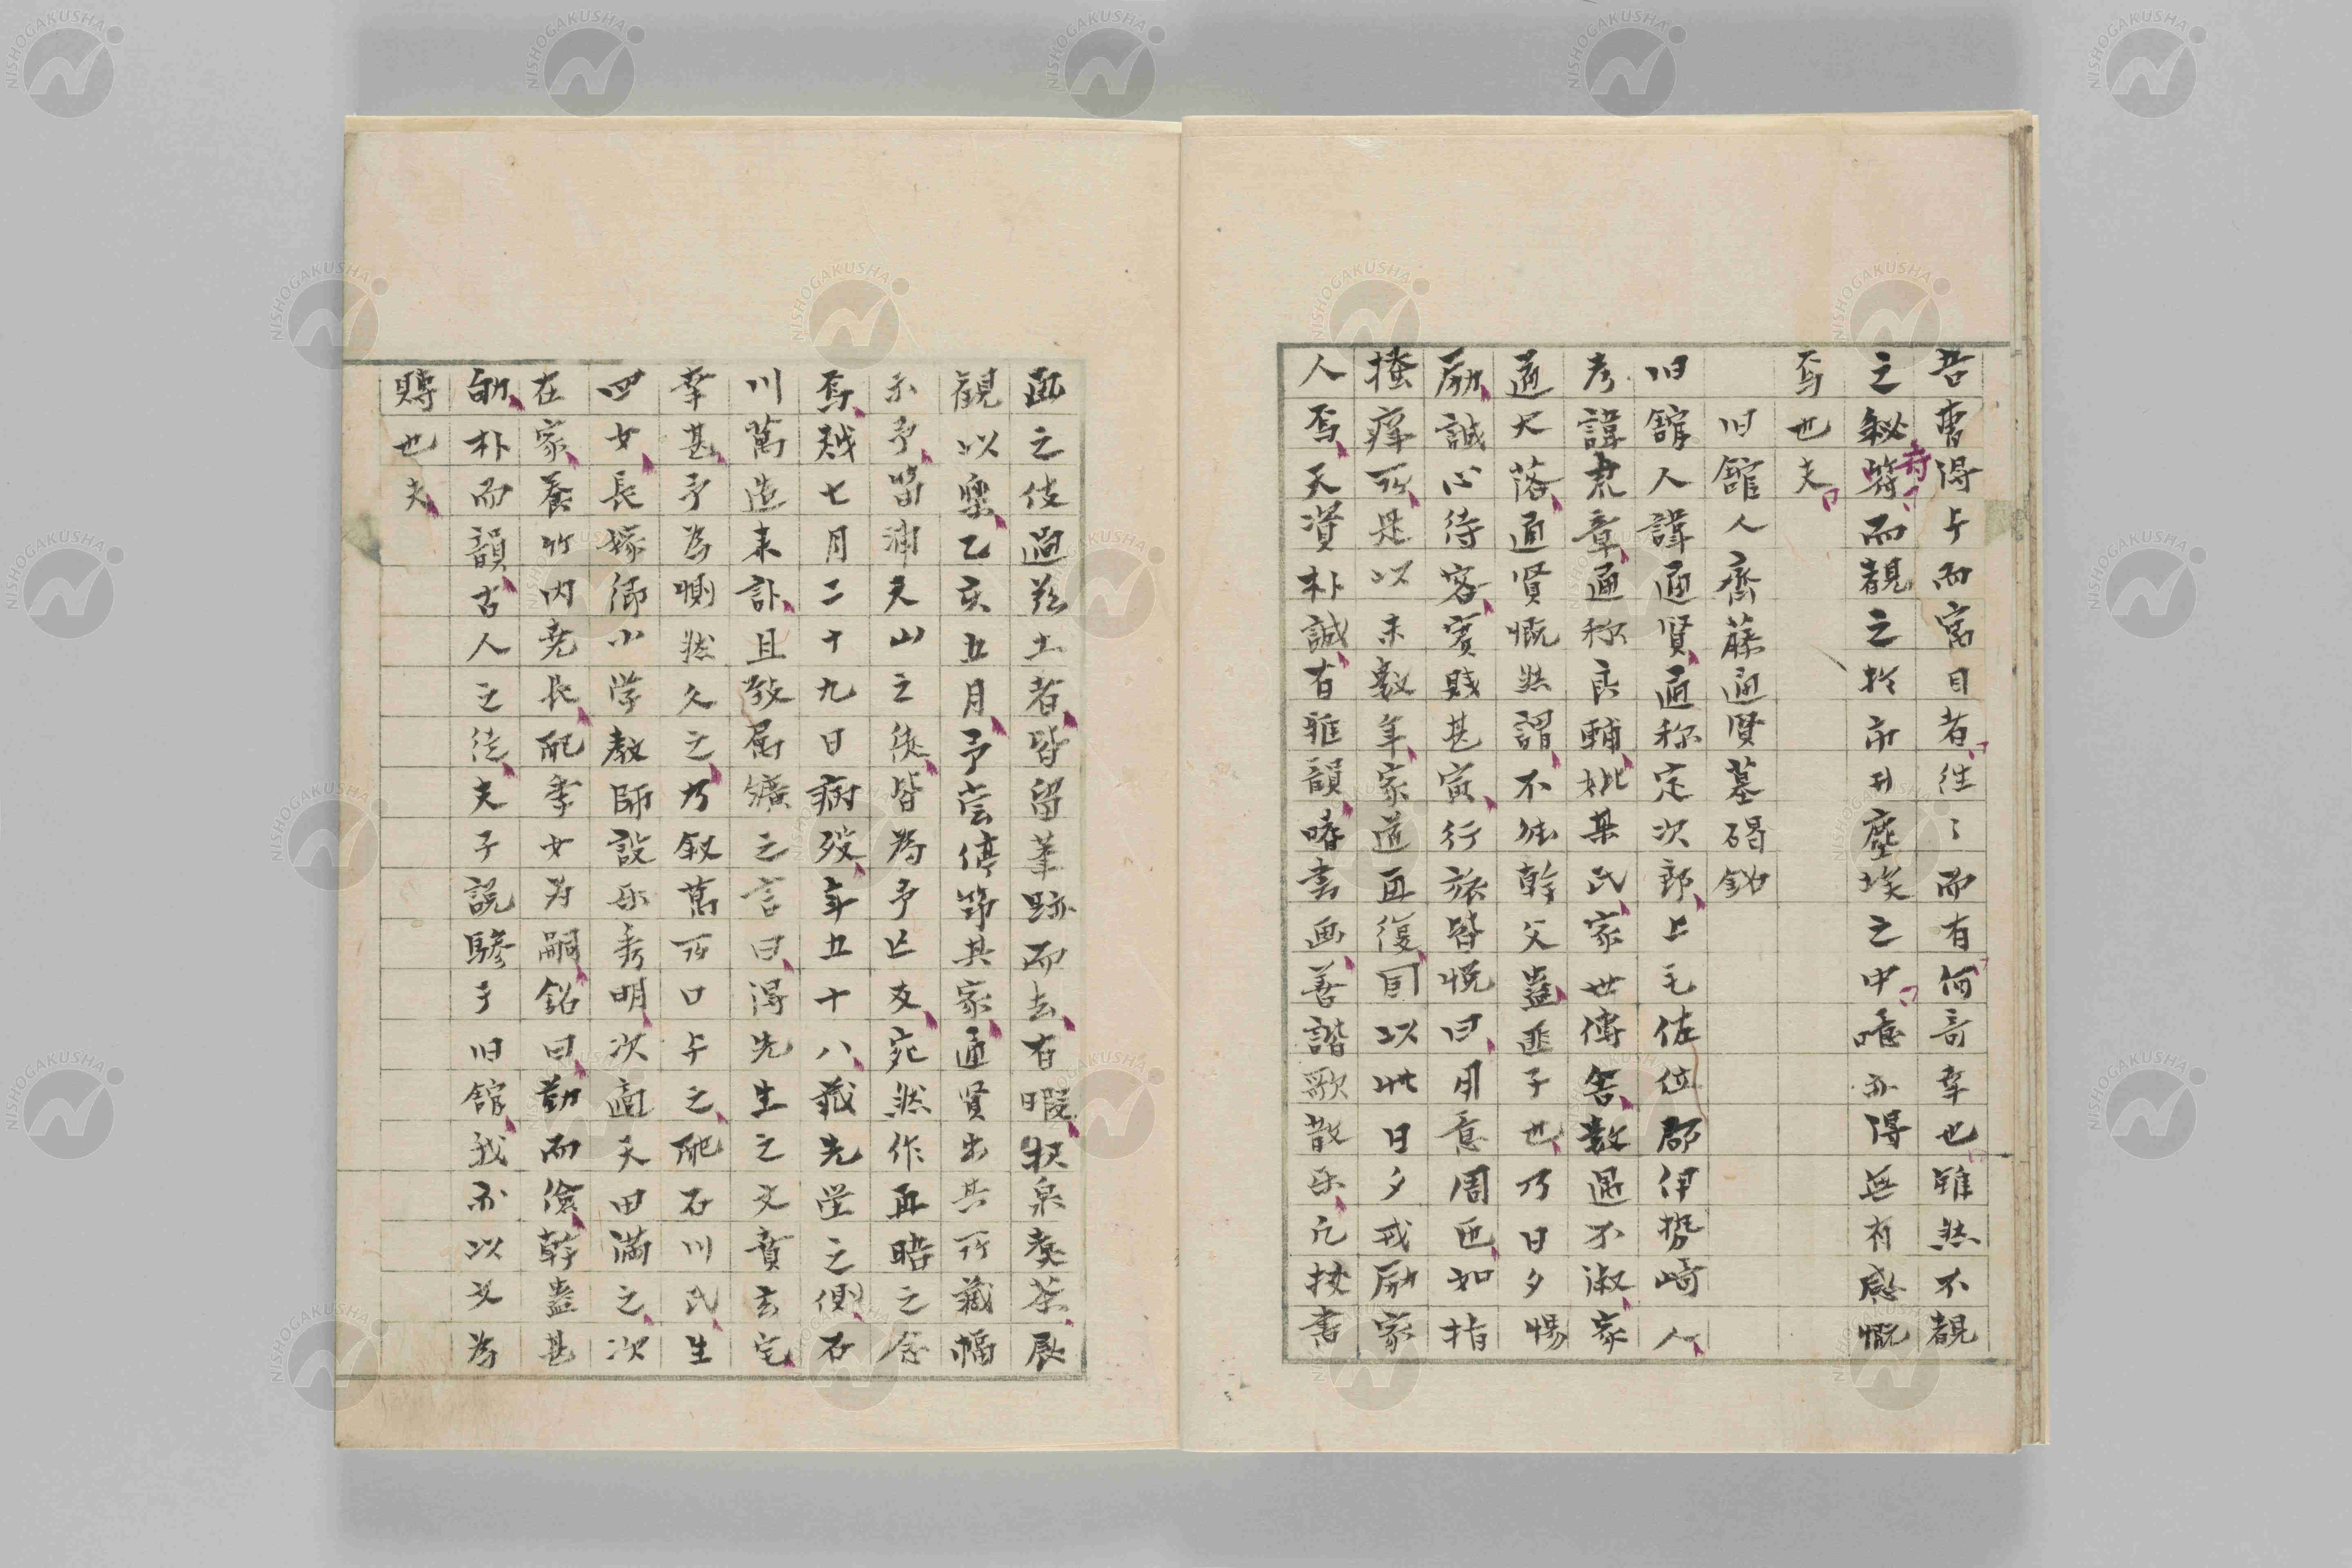 吾曹得与而寓目者往〻而有何奇幸也雖然不覩
之秘笈而覩之於市井塵埃之中噫亦得無有感慨
焉也夫
旧館人齋藤通賢墓碣銘
旧館人諱通賢通称定次郎上毛佐位郡伊勢崎人
考諱光章通称良輔妣某氏家世傳舎数遇不淑家
道大落通賢慨然謂不能幹父蠱匪子也乃日夕惕
励誠心待客賓賤甚寅行旅皆悦曰用意周匝如指
搔痒所是以未数年家道再復同以此日夕戒励家
人焉天資朴誠有雅韻嗜書画善諧歌散楽凡技書
画之伎過茲土者皆留筆跡而去有暇汲泉煑茶展
観以楽乙亥五月予嘗停笻其家通賢出其所藏幅
示予留浦夫山之徒皆為予亡友宛然作再晤之念
焉越七月二十九日病歿年五十八藏先塋之側石
川萬造来訃且致属纊之言曰得先生之文賁玄宅
幸甚予為惻然久之乃叙萬所口与之配石川氏生
四女長嫁鄉小学教師設楽秀明次適天田満之次
在家養竹内尭長配季女為嗣銘曰勤而儉幹蠱甚
劬朴而韻古人之徒夫子説驂于旧館我亦以文為
賻也夫